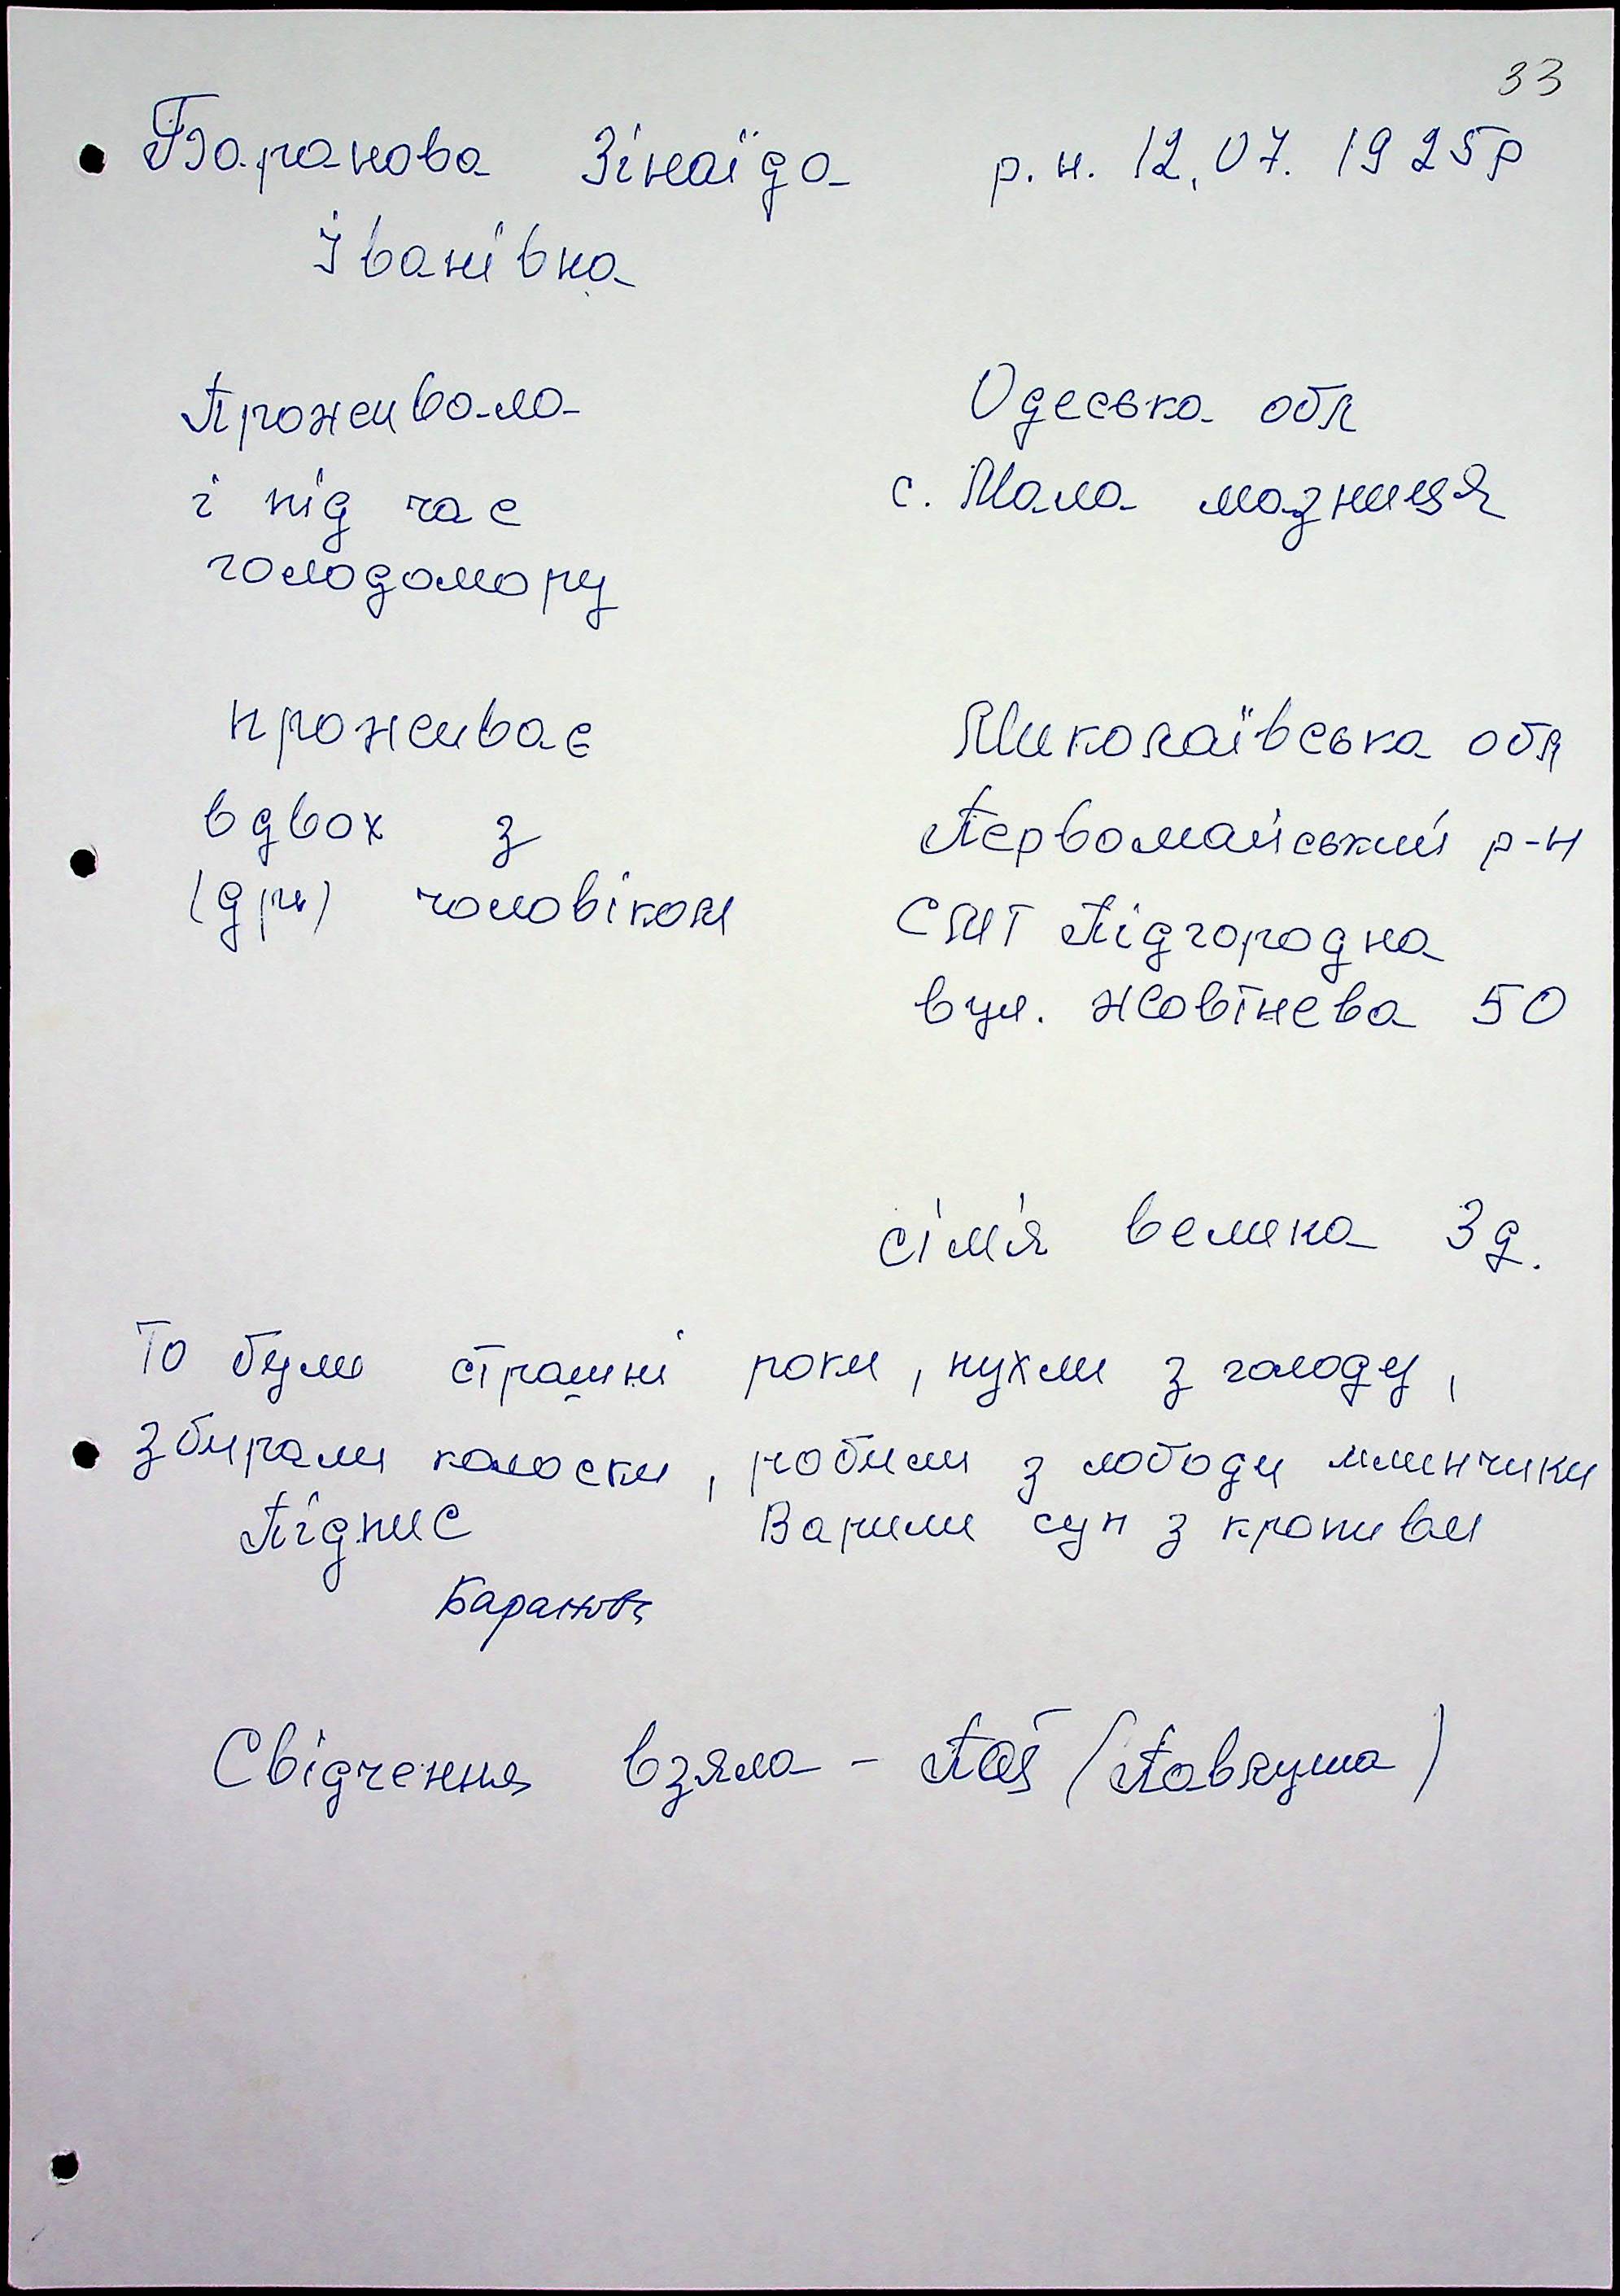 33
Баранова Зінаїда р.н. 12.07.1925р
Іванівна
Проживала Одеська обл
і під час с. Мала мазниця
голодомору
проживає Миколаївська обл
вдвох з Первомайський р-н
(др) чоловіком СМТ Підгородна
вул. Жовтнева 50
сім'я велика 3 д.
То були страшні роки, пухли з голоду,
збирали колоски, робили з лободи млинчики
Підпис Варили суп з кропиви
Баранова
Свідчення взяла - (Павлуша)